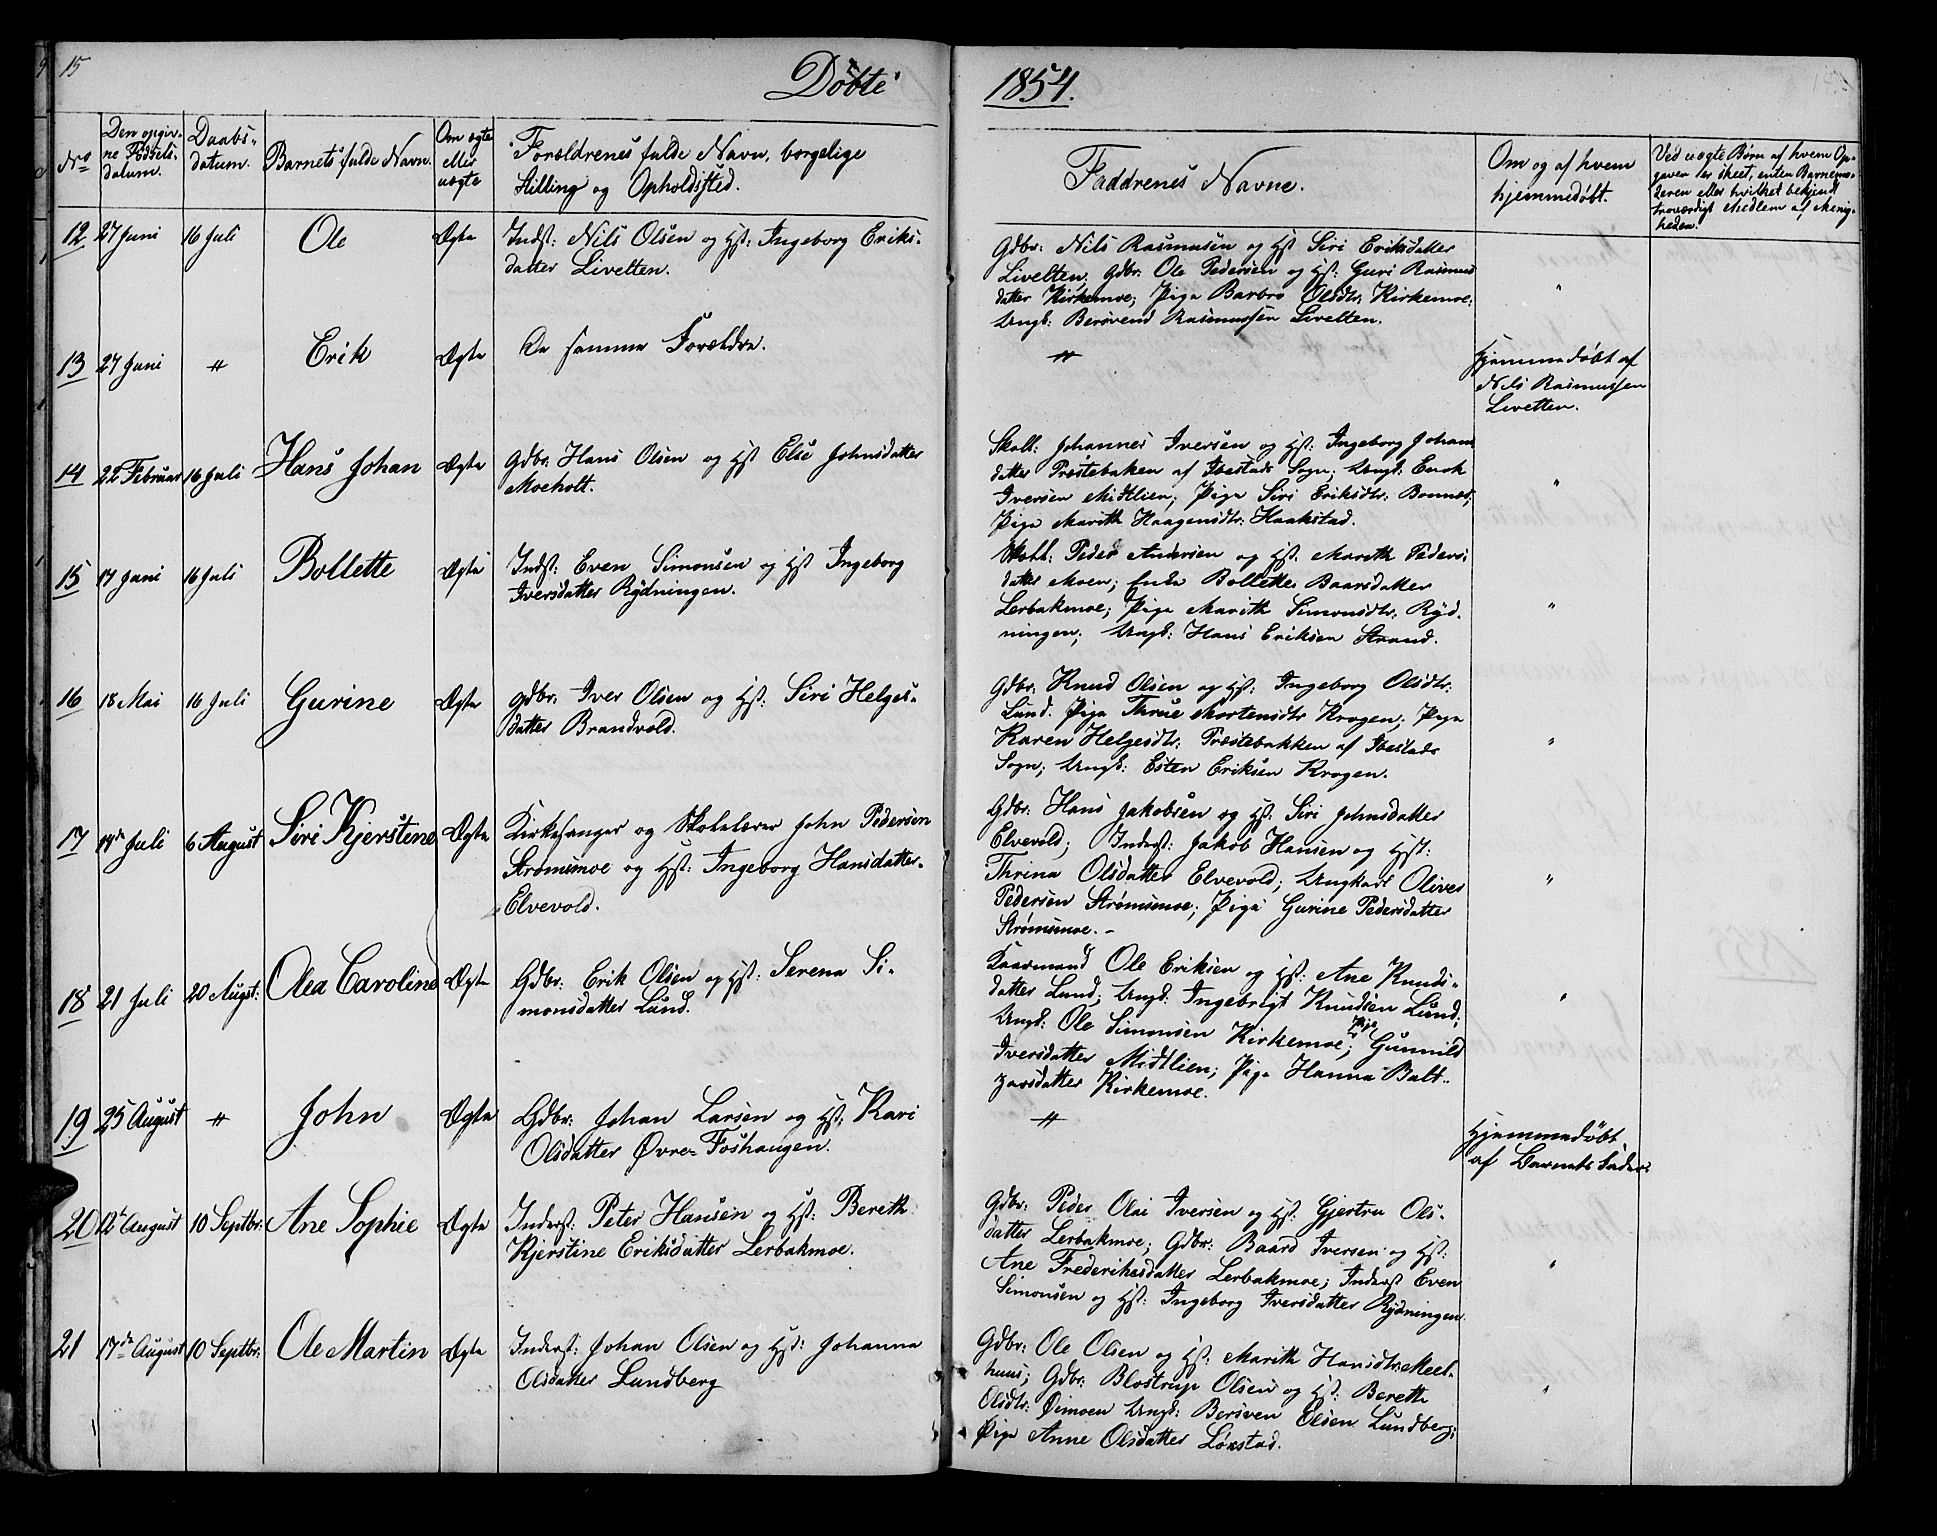 15
Döbte
1854.
No
Den opgiv-
ne Födsels-
datum.
Daabs-
datum.
Barnets fulde Navn.
Om ægte
eller
uægte
Forældrenes fulde Navn, borgelige
Stilling og Opholdssted.
Faddrenes Navne.
Om og af hvem
hjemmedøbt.
Ved uægte Børn af hvem Op-
gaven er skeet, enten Barnemo-
deren eller hvilket bekjend
troværdigt Medlem af Menig-
heden.
12 27 Juni 16 Juli Ole Ægte Indst: Nils Olsen og Hst: Ingeborg Eriks-
datter Livelten.
Gdbr: Nils Rasmusen og Hst Siri Eriksdatter
Livelten, Gdbr: Ole Pedersen og Hst: Guri Rasmus
datter Kirkemoe; Pige Barbro Olsdtr: Kirkemoe;
Ungk: Berøvend Rasmussen Livelten.
"
13 27 Juni " Erik Ægte De samme Forældre.
"
Hjemmedøbt af
Nils Rasmussen
Livelten.
14 22 Februar 16 Juli Hans Johan Ægte Gdbr: Hans Olsen og Hst Else Johnsdatter
Moeholt.
Skoll: Johannes Iversen og Hst: Ingeborg Johans
datter Præstebaken af Ibestads Sogn; Ungk: Enok
Iversen Midtlien; Pige Siri Eriksdtr: Bonnes;
Pige Marith Haagensdtr: Haakstad.
"
15 17 Juni 16 Juli Bollette Ægte Indst: Even Simonsen og Hst Ingeborg
Iversdatter Rydningen.
Skoll: Peder Andersen og Hst: Marith Peders-
datter Moen; Enke Bollette Baarsdatter
Lerbakmoe; Pige Marith Simonsdtr: Ryd-
ningen; Ungk: Hans Eriksen Strand.
"
16 18 Mai 16 Juli Gurine Ægte Gdbr: Iver Olsen og Hst: Siri Helges-
datter Brandvold.
Gdbr: Knud Olsen og Hst: Ingeborg Olsdtr:
Lund. Pige Thrue Mortensdtr Krogen; Pige
Karen Helgesdtr: Præstebakken af Ibestads
Sogn; Ungk: Esten Eriksen Krogen.
"
17 14de Juli 6 August Siri Kjerstene Ægte Kirkesanger og Skolelærer John Pedersen
Strømsmoe og Hst: Ingeborg Hansdatter-
Elvevold.
Gdbr: Hans Jakobsen og Hst: Siri Johnsdatter
Elvevold; Inderst: Jakob Hansen og Hst:
Thrina Olsdatter Elvevold; Ungkarl Oliver
Pedersen Strømsmoe; Pige Gurine Pedersdatter
Strømsmoe.-
"
18 21 Juli 20 Augst: Olea Caroline Ægte Gdbr: Erik Olsen og Hst: Serena Si-
monsdatter Lund.
Kaarmand Ole Eriksen og Hst: Ane Knuds-
datter Lund; Ungk: Ingebrigt Knudsen Lund;
Ungk: Ole Simonsen Kirkemoe; Pige Gunnild
Iversdatter Midtlien; Pige Hanna Balt-
zarsdatter Kirkemoe.
"
19 25 August " John Ægte Gdbr: Johan Larsen og Hst: Kari
Olsdatter Øvre-Foshaugen.
"
Hjemmedøbt
af Barnets Fader.
20 12te August 10 Septbr: Ane Sophie Ægte Inderst: Peter Hansen og Hst: Bereth
Kjerstine Eriksdatter Lerbakmoe.
Gdbr: Peder Olai Iversen og Hst: Gjertru Ols-
datter Lerbakmoe; Gdbr: Baard Iversen og Hst:
Ane Frederikesdatter Lerbakmoe; Inderst Even
Simonsen og Hst: Ingeborg Iversdatter Rydningen.
"
21 17de August 10 Septbr: Ole Martin Ægte Inderst: Johan Olsen og Hst: Johanna
Olsdatter Lundberg
Gdbr: Ole Olsen og Hst: Marith Hansdtr: Meel-
huus; Gdbr: Blostrup Olsen og Hst: Berette
Olsdtr: Øimoen Ungk: Bersven Olsen Lundberg;
Pige Anne Olsdatter Løxstad.
"